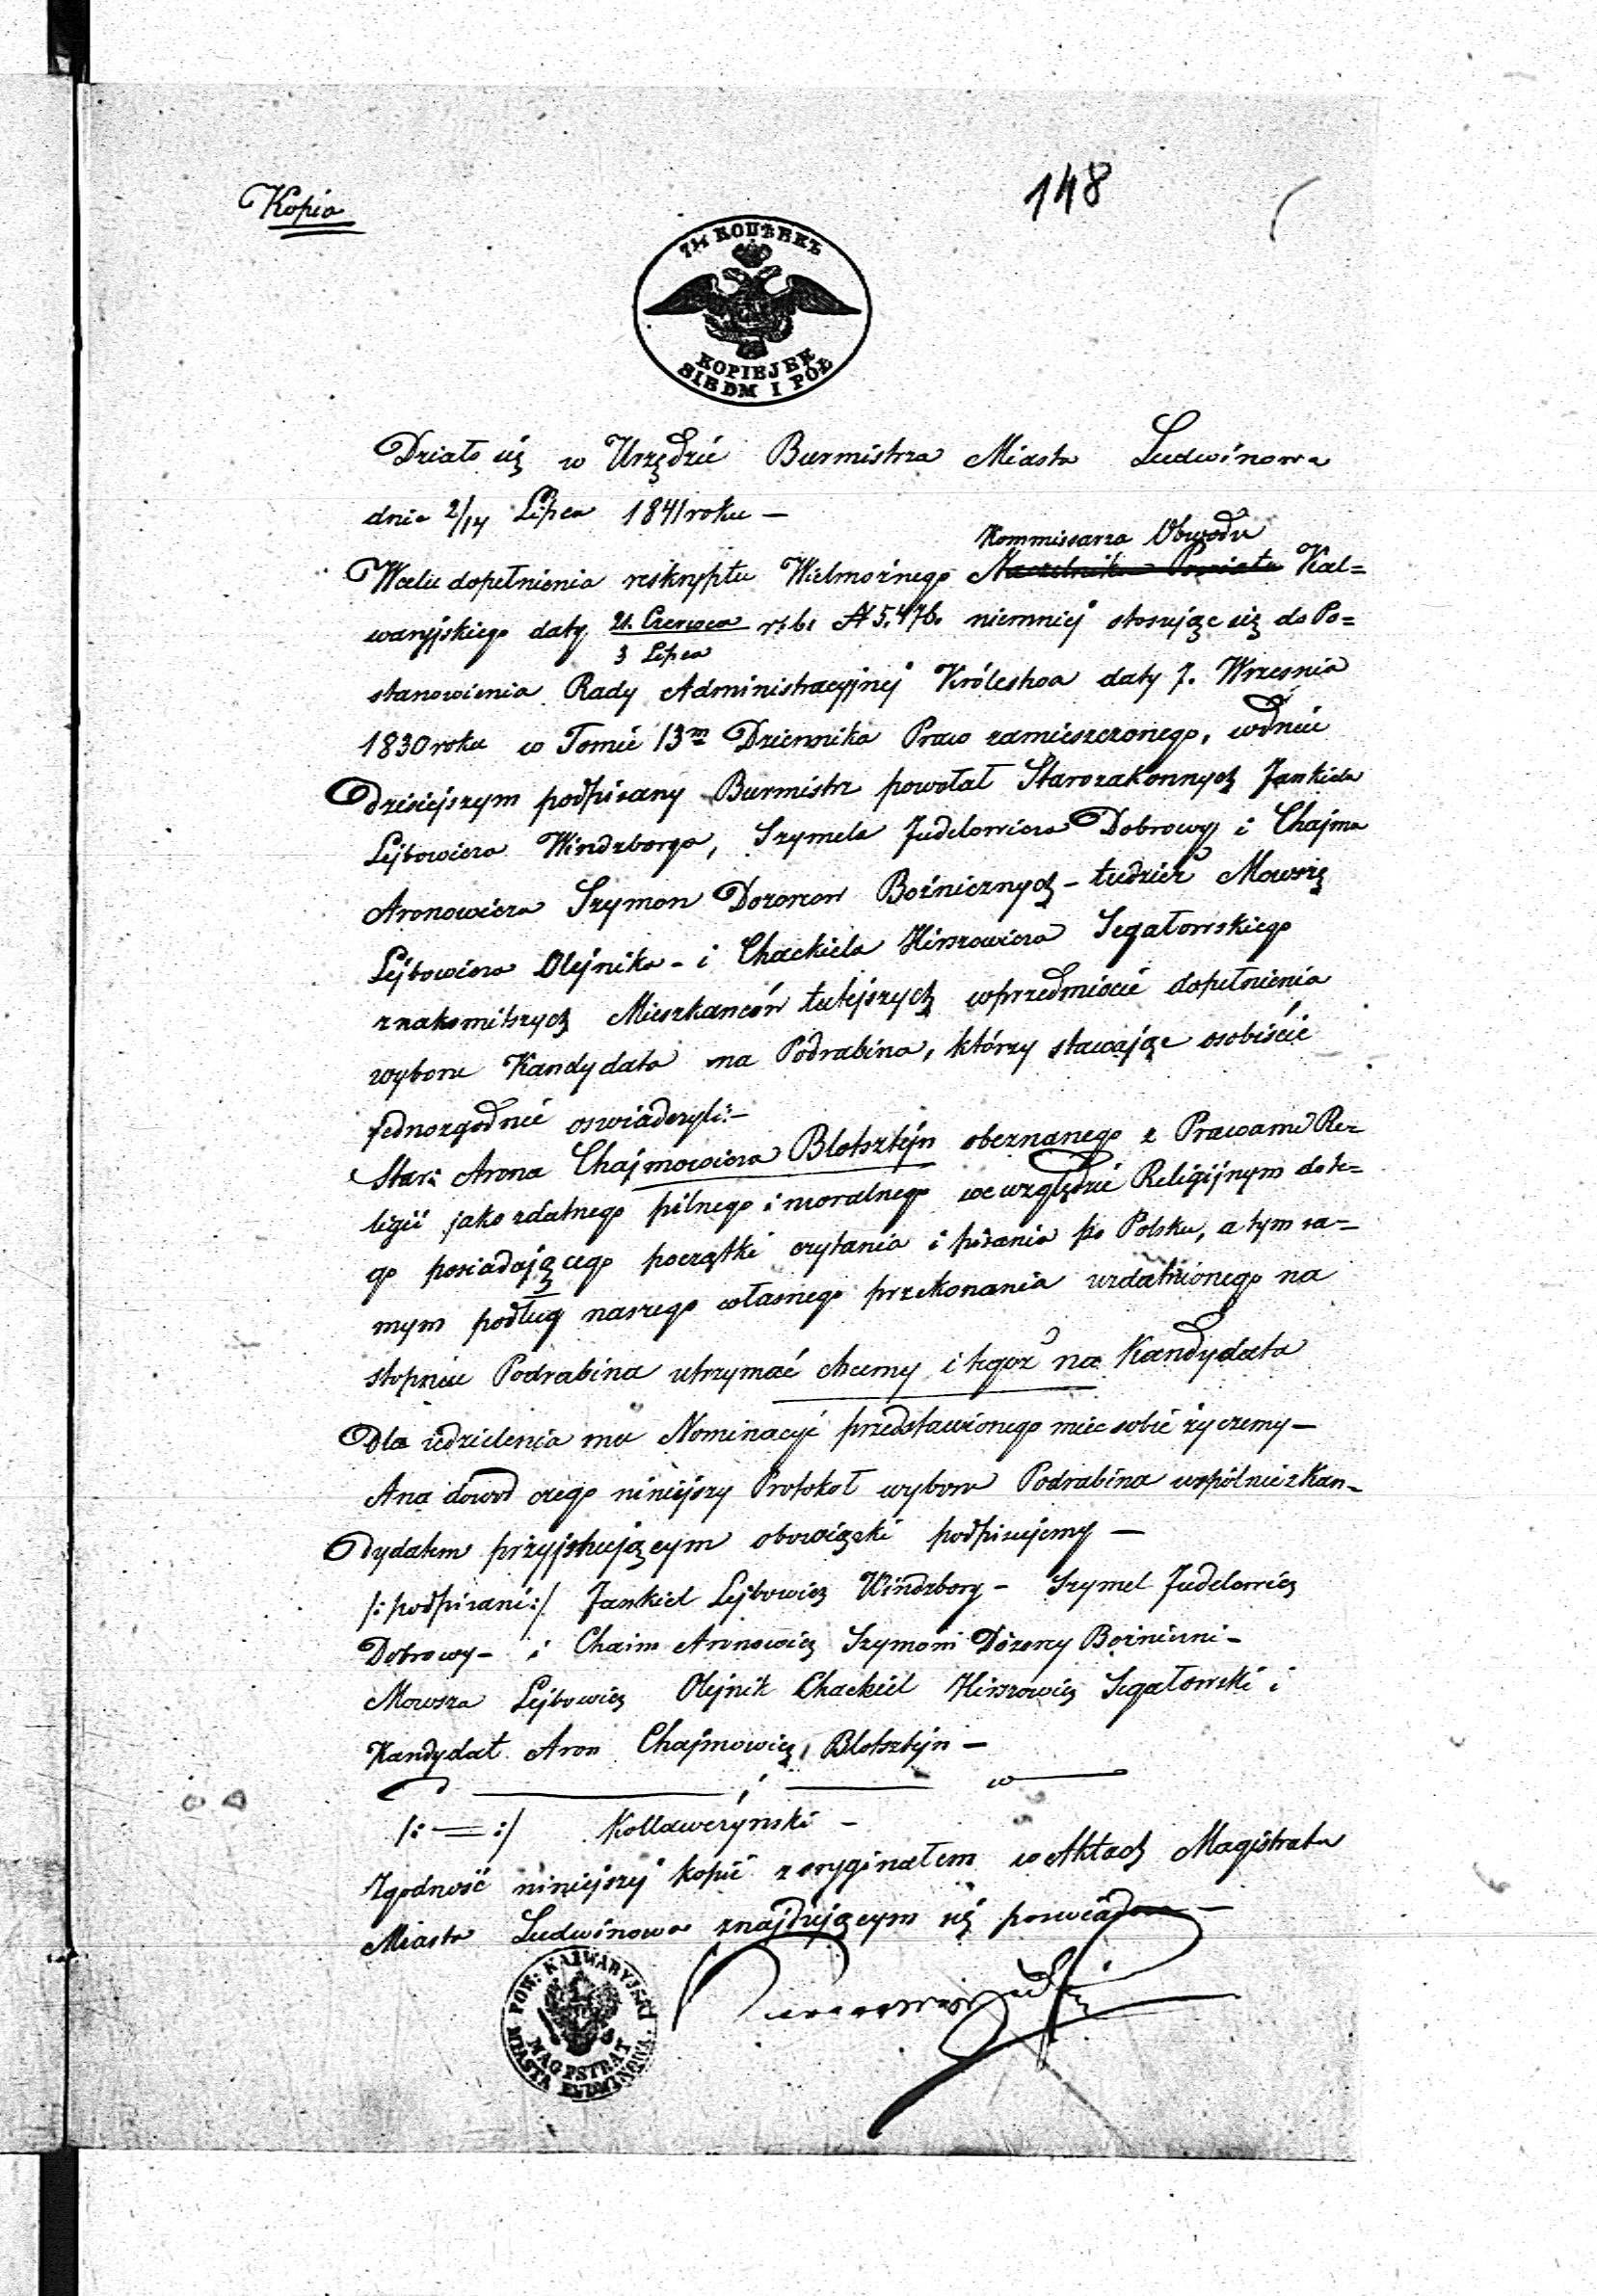 148
Kopia
7½ КОПѢЕКЪ
KOPIEJEK
SIEDM I PÓŁ
Działo się w Urzędzie Burmistrza Miasta Ludwinowa
dnia 2/14 Lipca 1841 roku —
Kommissarza Obwodu
W celu dopełnienia reskryptu Wielmożnego Naczelnika Powiatu Kal=
waryjskiego daty 21. Czerwca r: b: N 5,476. niemniej stosując się do Po=
3 Lipca
stanowienia Rady Administracyjnej Królestwa daty 7. Wrzesnia
1830 roku w Tomie 13m Dziennika Praw zamieszczonego, w dniu
dzisiejszym podpisany Burmistrz powołał Starozakonnych Jankiela
Lejbowicza Windzborga, Szymela Judelowicza Dobrowy i Chajma
Aronowicza Szymon Dozorcow Bożnicznych - tudzież Mowszę
Lejbowicza Olejnika - i Chackiela Hirszowicza Segałowskiego
znakomitszych Mieszkancow tutejszych w przedmiocie dopełnienia
wyboru Kandydata na Podrabina, którzy stawając osobiście
jednozgodnie oswiadczyli: -
Star: Arona Chajmowicza Blotsztejn obeznanego z Prawami Re=
ligii jako zdatnego pilnego i moralnego we względzie Religijnym do te=
go posiadającego początki czytania i pisania po Polsku, a tym sa=
mym podług naszego własnego przekonania uzdatnionego na
stopniu Podrabina utrzymać chcemy i tegoż na Kandydata
Dla udzielenia mu Nominacyi przedstawionego miec sobie życzemy —
A na dowod czego niniejszy Protokoł wyboru Podrabina wspólnie z Kan-
dydatem przyjmującym obowiązki podpisujemy —
/: podpisani :/ Jankiel Lejbowicz Windzborg - Szymel Judelowicz
Dobrowy - i Chaim Aronowicz Szymon Dozorcy Bożniczni -
Mowsza Lejbowicz Olejnik Chackiel Hirszowicz Segałowski i
Kandydat Aron Chajmowicz Blotsztejn —
/: = :/ Kollawczyński -
Zgodność niniejszej kopii z oryginałem w Aktach Magistratu
Miasta Ludwinowa znajdującym się poswiadcza —
POW: KALWARYJSKI
MAGISTRAT
MIASTA LUDWINOWA